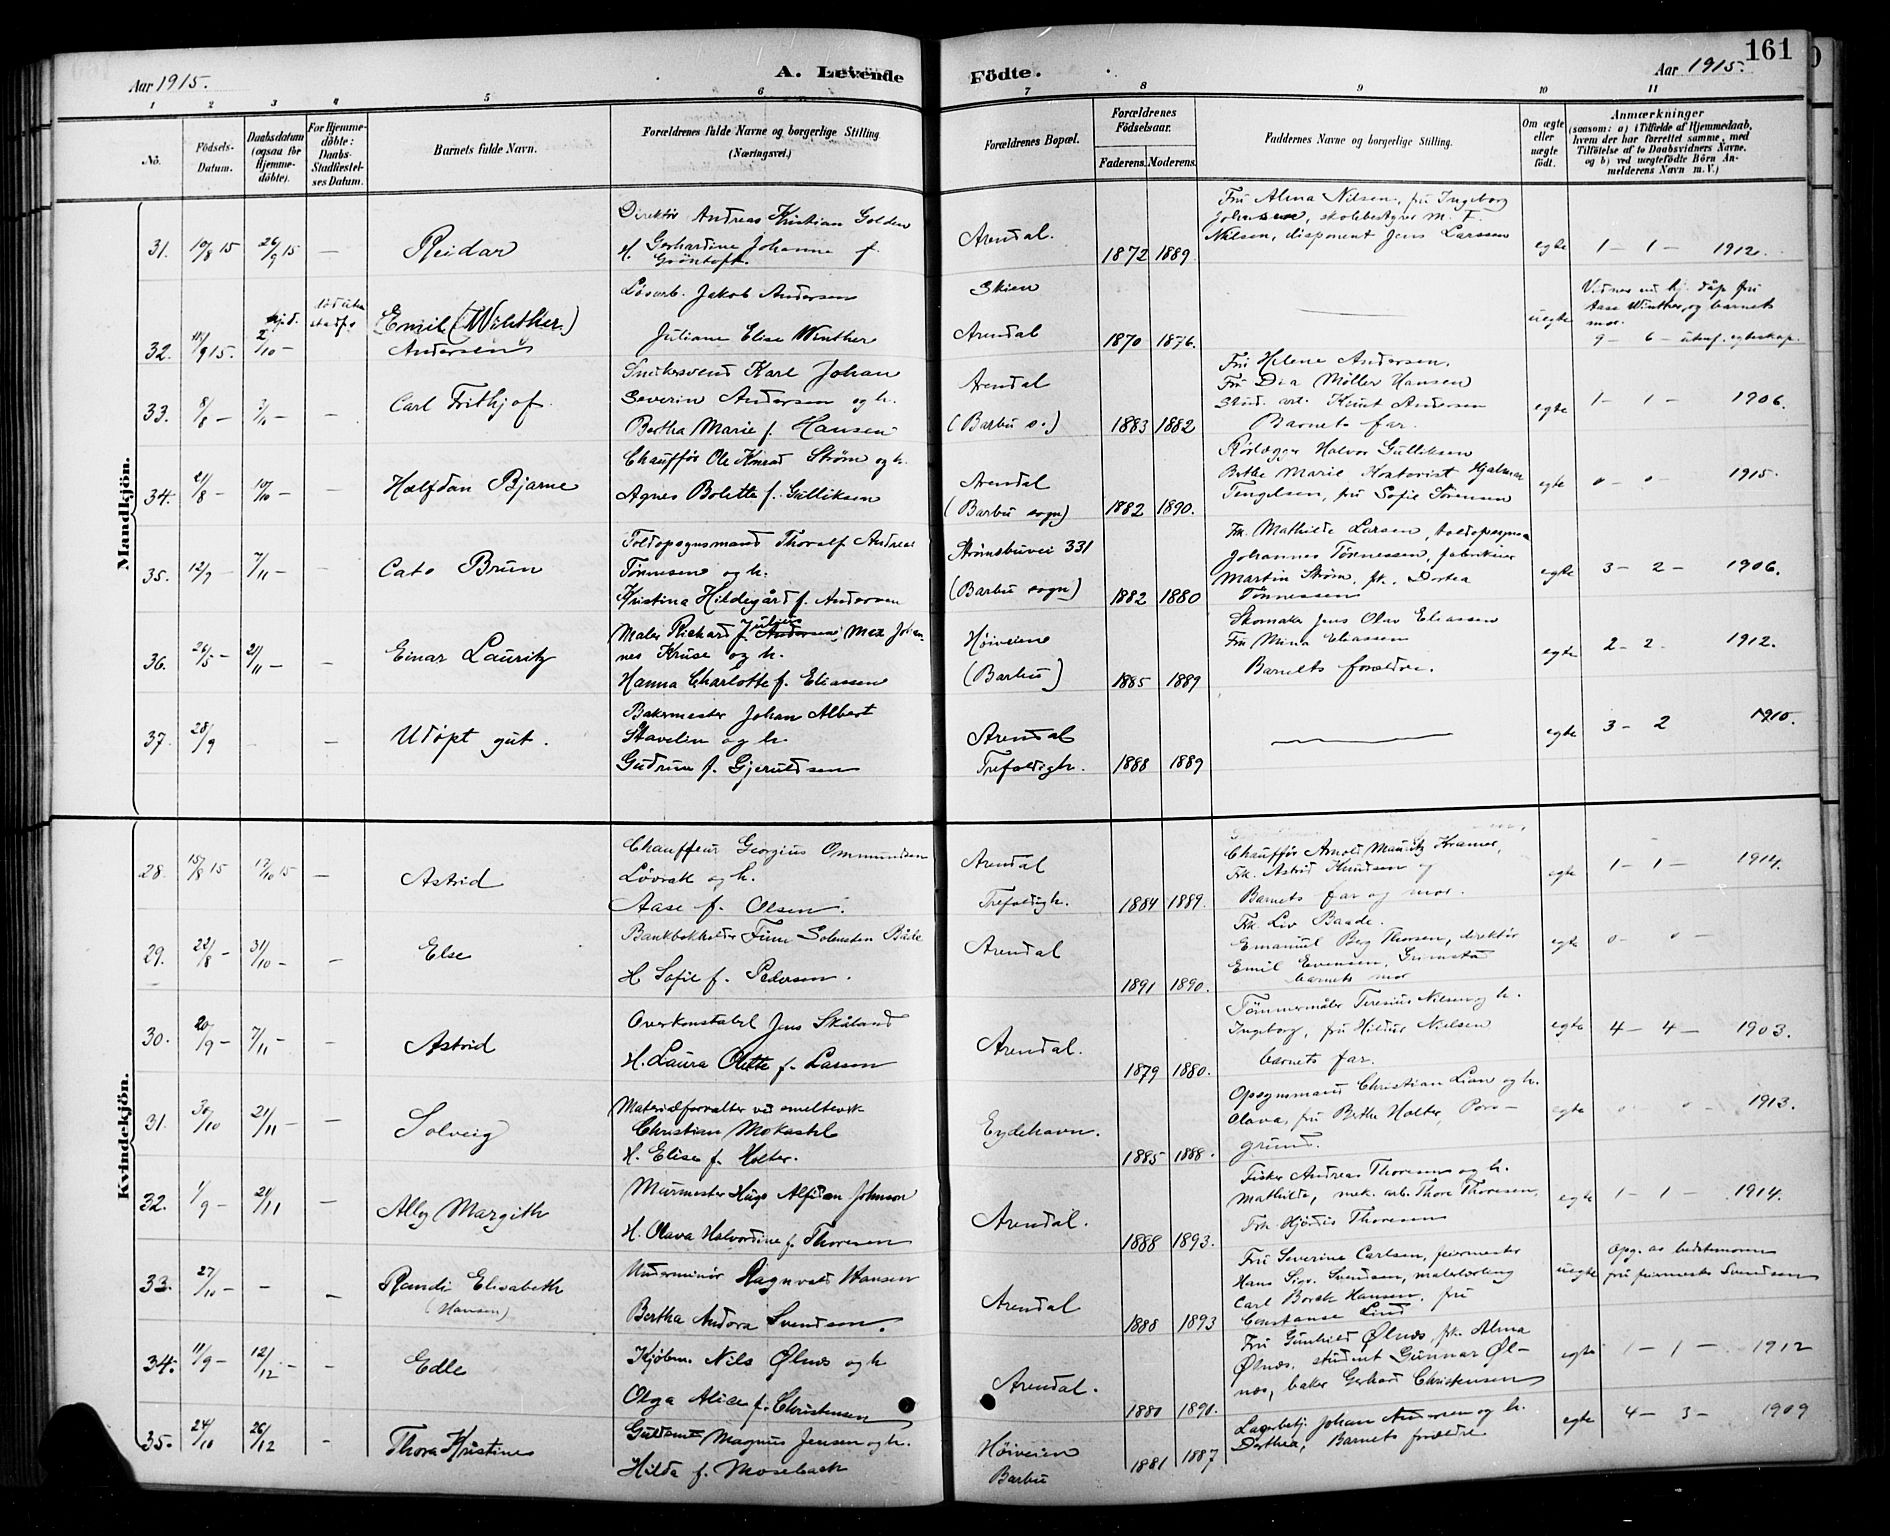 161
Aar 1915.
A. Levende Födte.
Aar 1915.
1 2 3 4 5 6 7 8 9 10 11
No.
Födsels-Datum.
Daabsdatum (ogsaa for Hjemme-döbte).
For Hjemme-döbte: Daabs-Stadfæstel-ses Datum.
Barnets fulde Navn.
Forældrenes fulde Navne og borgerlige Stilling.
(Næringsvei.)
Forældrenes Bopæl.
Forældrenes Födselsaar.
Faderens. Moderens.
Faddernes Navne og borgerlige Stilling.
Om ægte eller uægte födt.
Anmærkninger
(saasom: a) i Tilfælde af Hjemmedaab, hvem der har forrettet samme, med Tilföielse af to Daabsvidners Navne, og b) ved uægtefödte Börn Anmelderens Navn m. V.)
Mandkjön.
31. 10/8 15 26/9 15 — Reidar
Direktör Andreas Kristian Golden
H. Gerhardine Johanne f. Gröntoft.
Arendal. 1872 1889.
Fru Alma Nilsen, fru Ingeborg
Johansen, skolebestyrer M. F.
Nilsen, disponent Jens Larssen
egte 1 — 1 — 1912.
32. 15. hjd. 2/10 — Emil (Winther)
Andersen
Løsarb. Jakob Andersen
Juliane Elise Winther
Skien
Arendal 1870 1876.
uegte
Vidner ved hj. dåp fru
Aase Winther, og barnets
mor.
9 — 6 — utenf. egteskap.
33. 8/8 — — Carl Frithjof.
Snekersvend Karl Johan
Severin Andersen og h.
Bertha Marie f. Hansen
Arendal
(Barbu s.) 1883 1882
Fru Helene Andersen.
Fru Dea Møller Hansen
Stud. art. Knut Andersen
Barnets far.
egte 1 — 1 — 1906.
34. 21/8 — 10/10 — — Halfdan Bjarne
Chauffør Ole Knud Strøm og h.
Agnes Bolette f. Gulliksen
Arendal
(Barbu sogn) 1882 1890.
Rörlægger Halvor Gulliksen
Berthe Marie Hjalmar
Tengelsen, fru Sofie Sørensen
egte 0 — 0 — 1915.
35. 12/9 — 7/11 — — Cato Brun
Toldopsynsmand Thoralf Andreas
Tönnesen og h.
Kristina Hildegård f. Andersen
Strømsbuvei 331
(Barbu sogn) 1882 1880
Frk. Mathilde Larsen, toldopsynsm
Johannes Tönnessen, fabrikeier
Martin Strøm, frk. Dortea
Tönnessen
egte 3 — 2 — 1906.
36. 26/5 — 21/11 — — Einar Lauritz
Maler Richard Julius Max Johan-
nes Kruse og h.
Hanna Charlotte f. Eliassen
Høiveiene
(Barbu) 1885 1889
Skomaker Jens Olav Eliassen
Fru Mina Eliassen
Barnets forældre.
egte 2 — 2. 1912.
37. 28/9 - — Udöpt gut.
Bakermester Johan Albert
Stavelin og h.
Gudrun f. Gjeruldsen
Arendal
Trefoldigh. 1888 1889
egte 3 — 2 1915.
Kvindekjön.
28. 15/8 15 17/10 15 — Astrid
Chauffeur Georgius Ommundsen
Lövrak og h.
Aase f. Olsen.
Arendal
Trefoldigh. 1884 1889.
Chauffør Arnold Mauritz Kramer,
Frk. Astrid Knudsen og
Barnets far og mor.
egte 1 — 1 — 1914.
29. 22/8 — 31/10 — Else
Bankbokholder Finn Solmsten Baade
H Sofie f. Pedersen.
Arendal 1891 1890.
Frk. Liv Baade.
Emanuel Berg Thorsen, direktör
Emil Evensen, Grimstad
barnets mor
egte 0 — 0 —
30. 20/9 — 7/11 — — Astrid
Overkonstabel Jens Skåland
H. Laura Olette f. Larsen
Arendal. 1879 1880.
Tömmermåler Teresius Nilsen og h.
Ingeborg, fru Hildur Nielsen
barnets far.
egte 4 — 4 — 1903.
31. 30/10 21/11 — — Solveig
Materialforvalter ved smelteverk
Christian Mokastel
H. Elise f. Holter.
Eydehavn. 1885 1888.
Opsynsmand Christian Lian og h.
Olava, fru Berthe Holter, Pors-
grund.
egte 0 — 0 — 1913.
32. 1/9 — 21/11 — Ally Margith
Murmester Hugo Alfidan Johnson
H. Olava Halvordine f. Thoresen
Arendal. 1888 1893.
Fisker Andreas Thoresen og h.
Mathilde, mek. arb. Thore Thoresen,
Frk Hjördis Thoresen
egte 1 — 1 — 1914.
33. 27/10 — - — Randi Elisabeth
(Hansen)
Underminör Ragnvald Hansen
Bertha Andora Svendsen.
Arendal 1888 1893
Fru Severine Carlsen, feiermester
Hans Sigv. Svendsen, malerlærling
Carl Borck Hansen, fru
Constanse Lind
uegte
Opg. av bedstemoren
fru feiermester Svendsen
34. 11/9 — 12/12 — Edle
Kjøbm. Nils Ølnes og h
Olga Alice f. Christensen
Arendal. 1880 1890.
Fru Gunhild Ølnes, frk. Alma
Ølnes, student Gunnar Øl-
nes, baker Gerhard Christensen
egte 1 — 1 — 1912
35. 24/10 26/12 - Thora Kristine
Guldsm Magnus Jensen og h.
Hilda f. Moseback
Høiveien
Barbu 1881 1887
Lagerbetj. Johan Andersen og h.
Dorthea, Barnets forældre
egte 4 — 3 — 1909